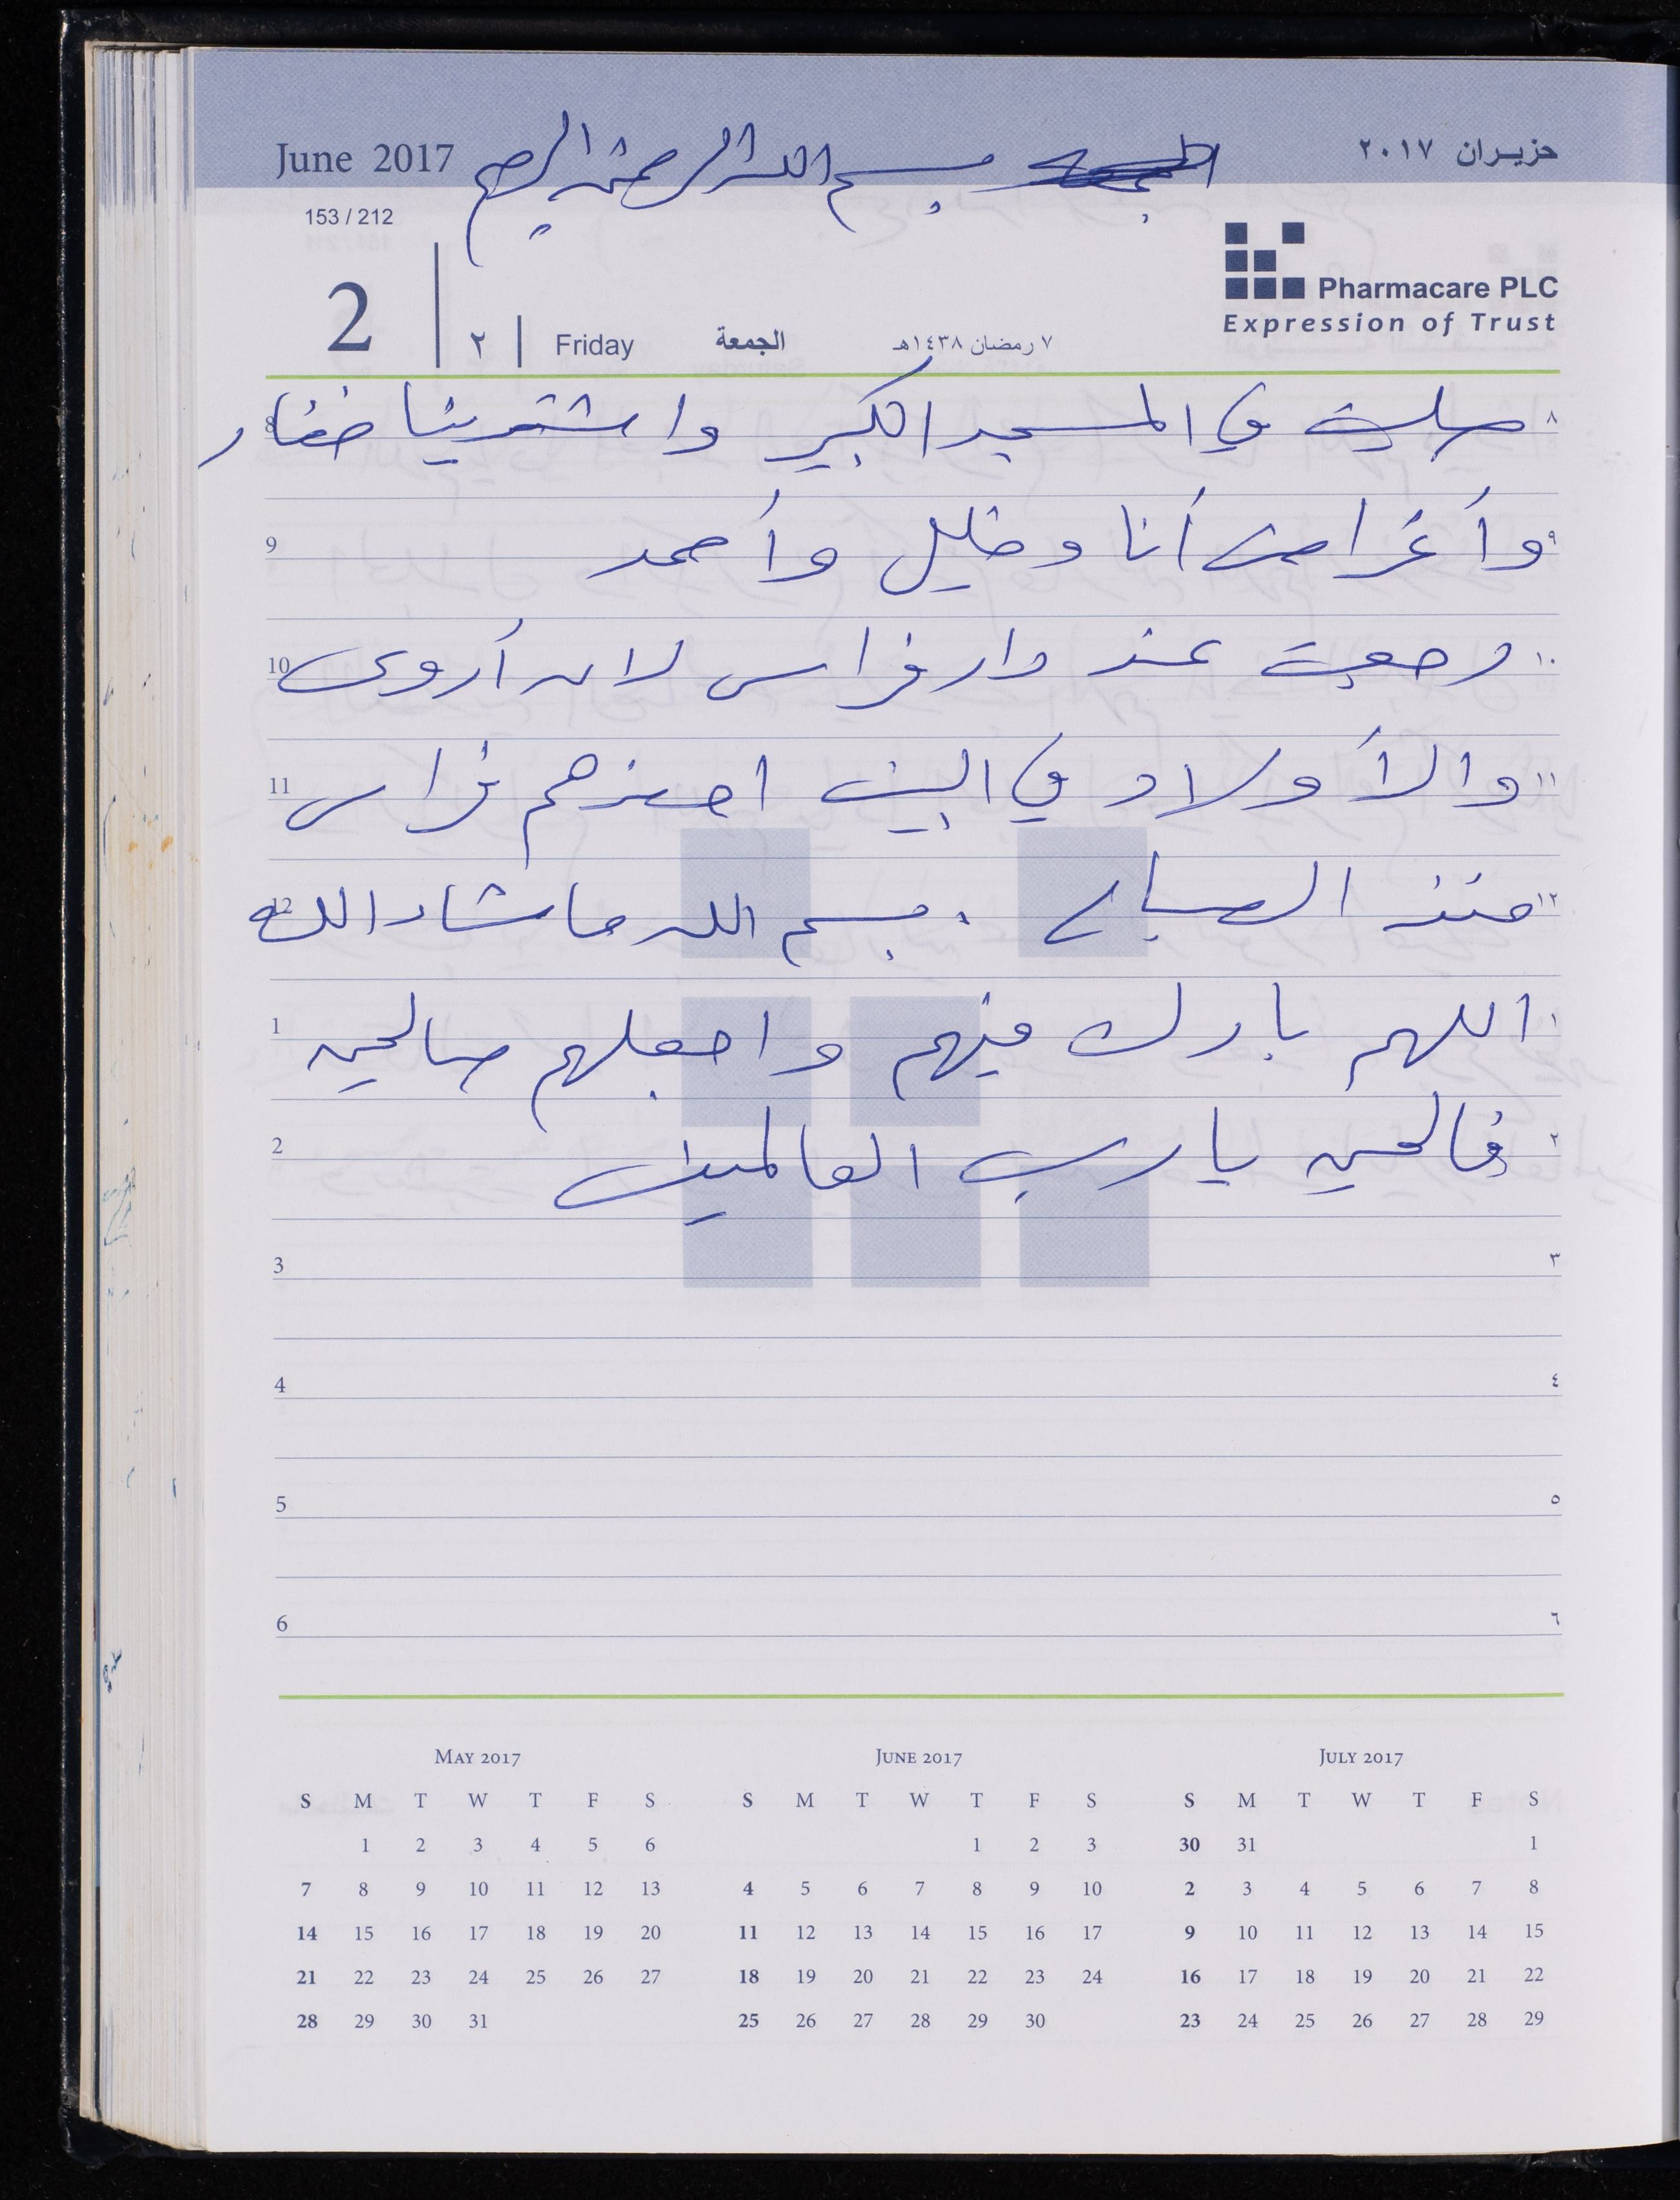 June 2017 بسم الله الرحمن الرحيم حزيران ٢٠١٧
153 / 212
Pharmacare PLC
Expression of Trust
2 ٢ Friday الجمعة ٧ رمضان ١٤٣٨هـ
8 صليت في المسجد الكبير واشترينا خضار ٨
9 وأغراض أنا وخليل وأحمد ٩
10 رجعت عند دار فراس لان أروى ١٠
11 والأولاد في البيت احضرهم فراس ١١
12 منذ الصباح . بسم الله ما شاء الله ١٢
1 اللهم بارك فيهم واجعلهم صالحين ١
2 فالحين يا رب العالمين ٢
3 ٣
4 ٤
5 ٥
6 ٦
May 2017
S M T W T F S
1 2 3 4 5 6
7 8 9 10 11 12 13
14 15 16 17 18 19 20
21 22 23 24 25 26 27
28 29 30 31
June 2017
S M T W T F S
1 2 3
4 5 6 7 8 9 10
11 12 13 14 15 16 17
18 19 20 21 22 23 24
25 26 27 28 29 30
July 2017
S M T W T F S
30 31 1
2 3 4 5 6 7 8
9 10 11 12 13 14 15
16 17 18 19 20 21 22
23 24 25 26 27 28 29